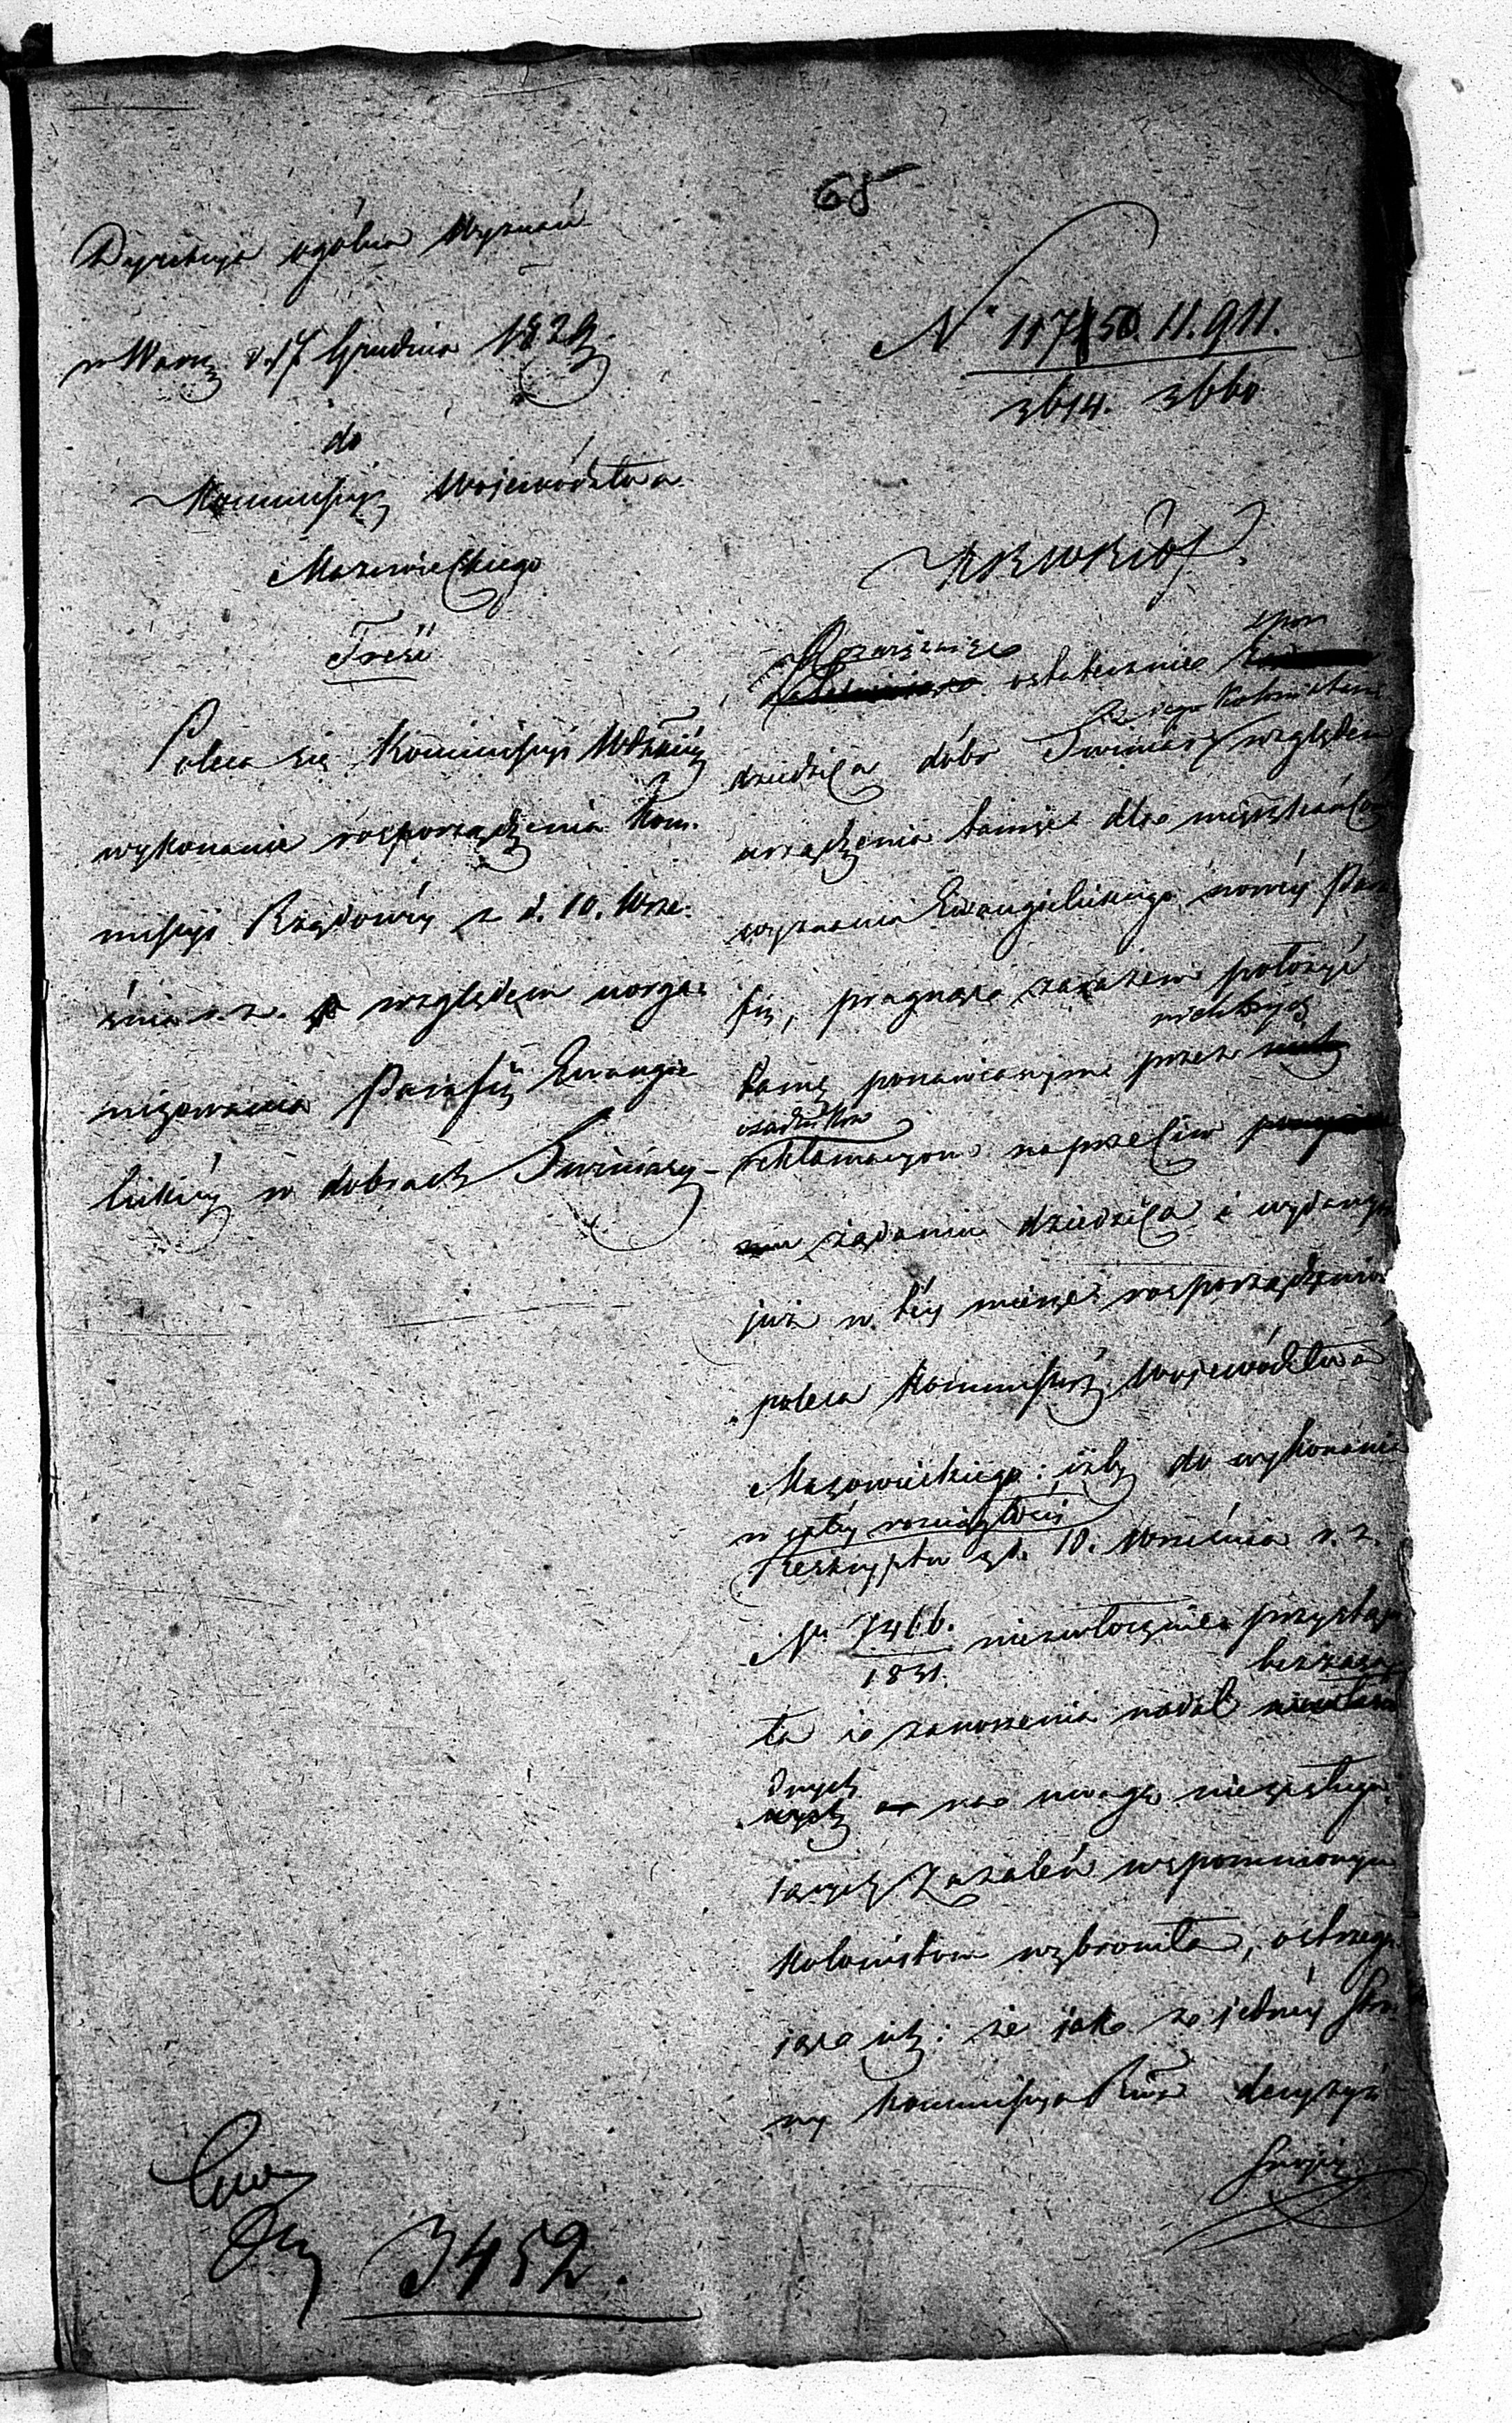 65
Dyrekcya ogólna Wyznań
w Warsz d. 17 Grudnia 1829.
do
Kommissyi Województwa
Mazowieckiego
Treść
Poleca się Kommissyi
wykonanie rosporządzenia Kom.
missyi Rządowéy z d. 10. Wrze.
śnia r. z. względem uorga
nizowania Parafii Ewangie
lickiéy w dobrach Swiniary
3452.
N° 11.911.
3614. 3660
KRWRiOP.
ostatecznie spór
Kolonistami
dziedzica dóbr Swiniary względem
urządzenia tamże dla mieszkańców
wyznania Ewangielickiego nowéy Para
fii, pragnąc zarazem położyć
niektórych
tamę ponawianym przez
osadników
reklamacyom naprzeciw
żądaniu dziedzica i wydanym
już w téy mierze rosporządzeniom
poleca Kommissyi Województwa
Mazowieckiego: iżby do wykonania
w całéy rozciągłości
Reskryptu z d. 10. Września r. z.
N° 7466.
1831. niezwłocznie przystąpi
bezzasa
ła i zanoszenia nadal
dnych
na uwagę niezasługu
iących Zażaleń wspomnionym
Kolonistom wzbroniła, ostrzega
iąc ich: że jako z jednéy stro
ny Kommissya Rząd decyzyi
swojéy